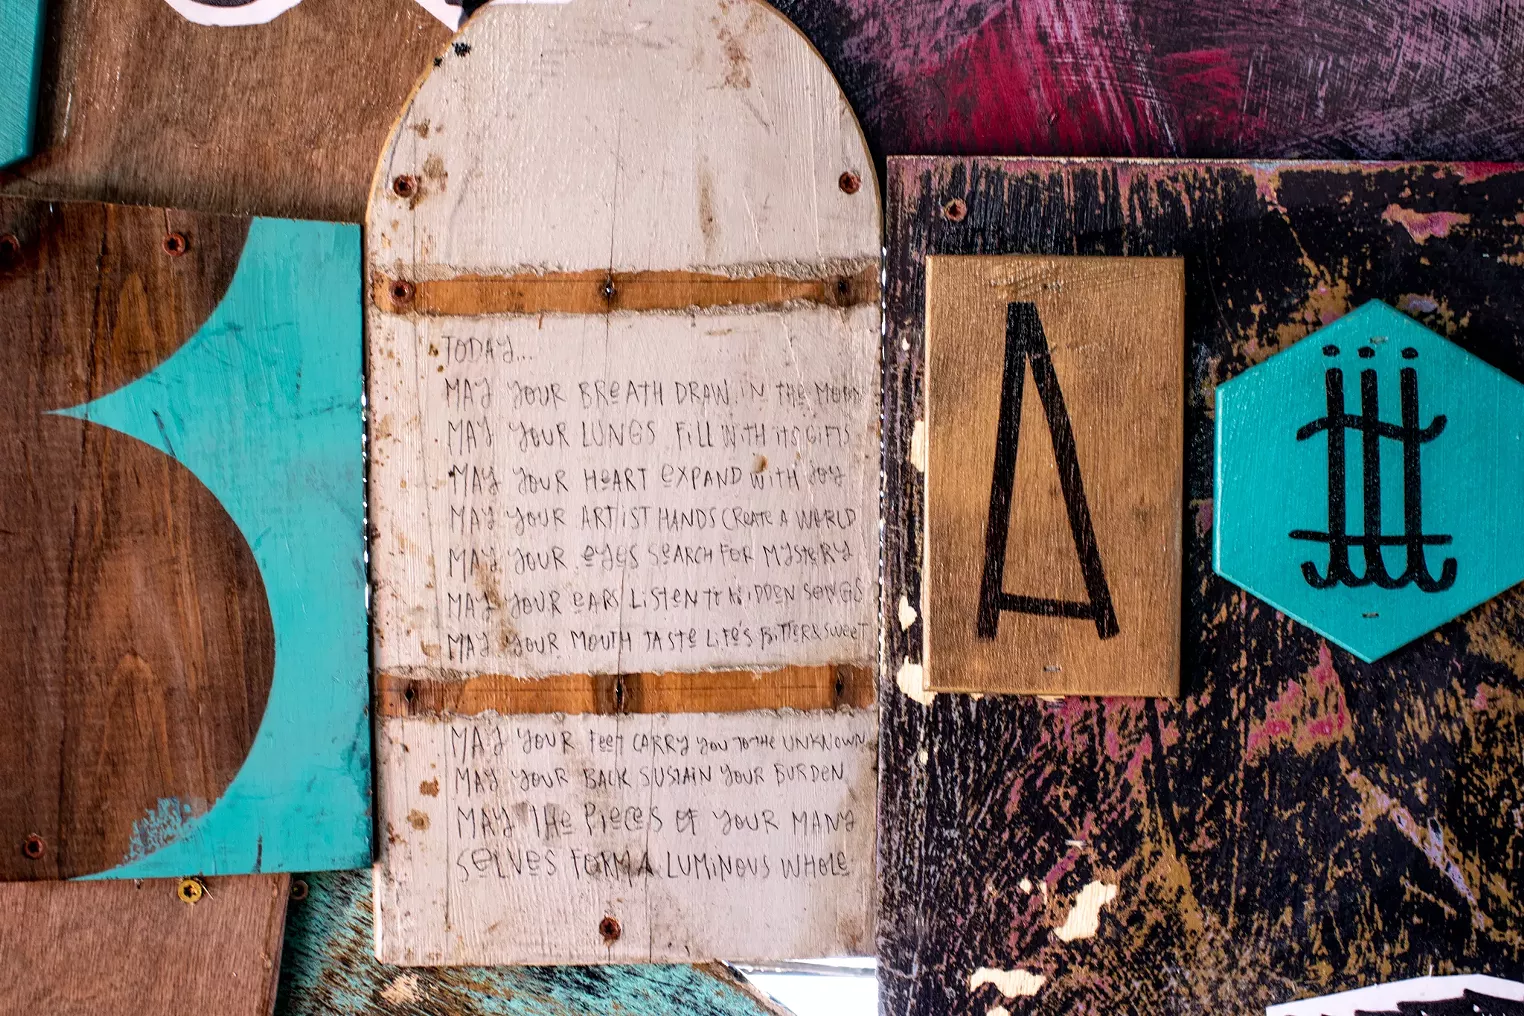 TODAY...
MAY YOUR BREATH DRAW IN THE MOON
MAY YOUR LUNGS FILL WITH ITS GIFTS
MAY YOUR HEART EXPAND WITH JOY
MAY YOUR ARTIST HANDS CREATE A WORLD
MAY YOUR EYES SEARCH FOR MYSTERY
MAY YOUR EARS LISTEN TO HIDDEN SONGS
MAY YOUR MOUTH TASTE LIFE'S BITTER&SWEET
MAY YOUR FEET CARRY YOU TO THE UNKNOWN
MAY YOUR BACK SUSTAIN YOUR BURDEN
MAY THE PIECES OF YOUR MANY
SELVES FORM A LUMINOUS WHOLE
A